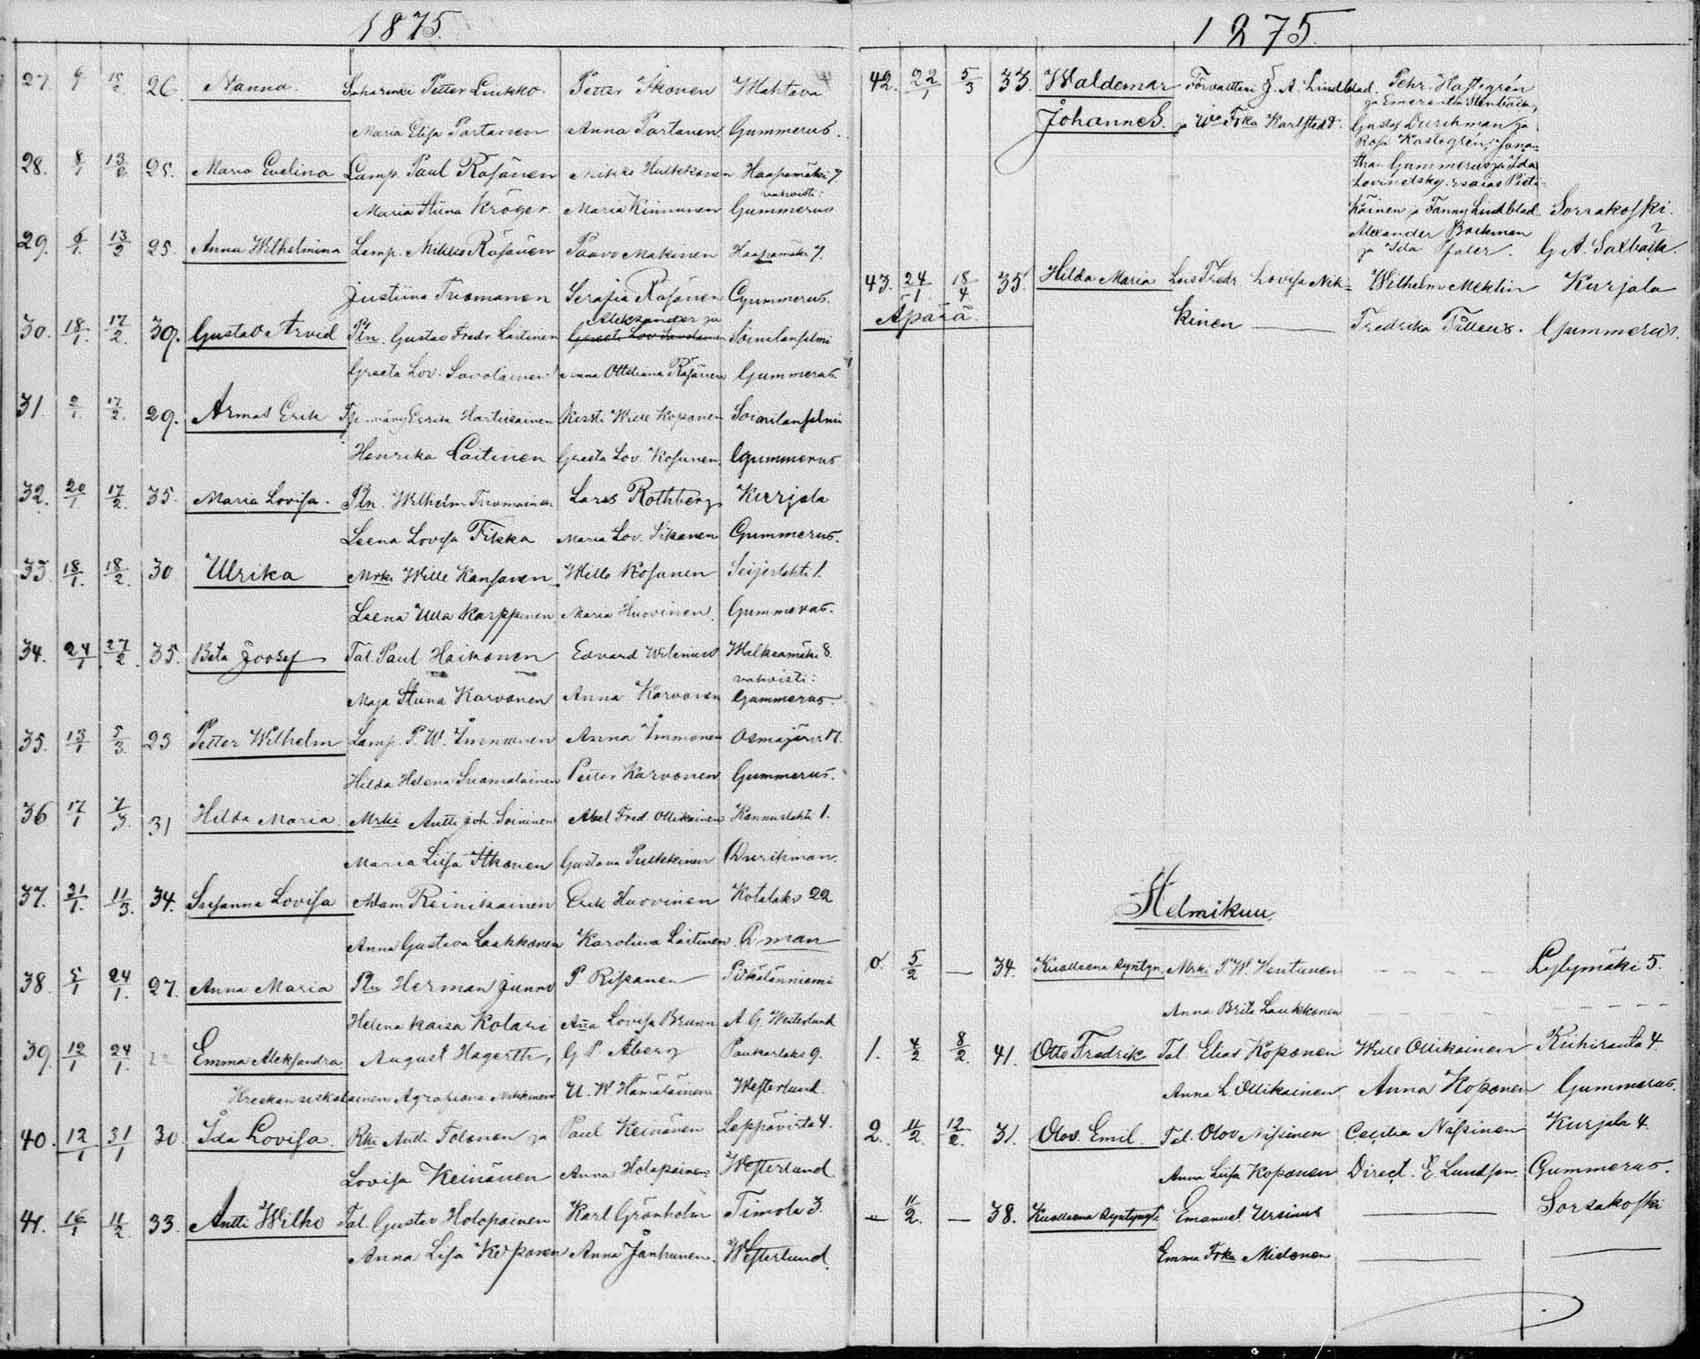 1875.
27. 9/1 15/2 26. Nanna. Petter Liukko. Petter Ikonen Mahteva
Maria Elisa Partanen Anna Partanen Gummerus.
28. 8/1 13/2 25. Maria Evelina Lamp. Paul Räsänen Mikki Hulkkonen Haapamäki 7
vahvisti:
Maria Stiina Kröger Maria Kinnunen Gummerus
29. 6/1 13/2 25. Anna Wilhelmina Lamp. Mikko Räsänen Paavo Makinen Haapamäki 7.
Justiina Tuomanen Serafia Räsänen Gummerus.
Aleksander ja
30. 18/1. 17/2. 39. Gustav Arvid Pln. Gustav Fredr. Laitinen Soinilansalmi
Greeta Lov. Savolainen Anna Ottiliana Räsänen Gummerus
31. 2/1. 17/2. 29. Armas Erik Eerik Hartikainen Kirsti Wille Kosonen Soinilansalmi
Henrika Laitinen Greeta Lov. Kosunen. Gummerus
32. 20/1 17/2. 35. Maria Lovisa. Pln. Wilhelm Tuomainen Lars Rothberg Kurjala
Leena Lovisa Tikka Maria Lov. Ikonen Gummerus.
33. 18/1. 18/2. 30 Ulrika Mrki Wille Kansanen Wille Kosunen Seijerlahti 1.
Leena Ulla Karppinen Maria Huovinen. Gummerus.
34. 24/1 27/2. 35. Beta Joosef Tal. Paul Haikonen Edvard Wilenius Walkeamäki 8.
vahvisti:
Maja Stiina Karvonen Anna Karvonen Gummerus.
35. 13/1 5/3. 23 Petter Wilhelm Lamp. P. W. Immonen Anna Immonen Osmajärvi 17.
Hilda Helena Suomalainen Petter Karvonen Gummerus.
36 17/1 7/3. 31 Hilda Maria. Mrki Antti Joh. Soininen Abel Fred. Ollikainen Kannuslahti 1.
Maria Liisa Itkonen Gustava Pulkkinen Durchman.
37. 21/1. 11/3. 34. Susanna Lovisa Adam Reinikainen Erik Huovinen Kotalaks 22
Anna Gustava Laakkonen Karolina Laitinen. D:man
38. 5/1 24/1. 27. Anna Maria Pln Herman Junno P Rissanen Pitkälänniemi
Helena Kaisa Kolari Anna Lovisa Brunn A. G. Westerlund
39. 12/1 24/1. Emma Aleksandra August Hagerth, G P. Åberg Paukarlaks 9.
Agrafiana Nikkinen U. W Hämäläinen Westerlund.
40. 12/1 31/1 30. Ida Lovisa. Rki Antti Tolonen ja Paul Keinänen Leppävirta 4.
Lovisa Keinänen Anna Holopainen Westerlund
41. 16/1 11/2 33. Antti Wilho Tal. Gustav Holopainen Karl Grönholm Timola 3.
Anna Lisa Koponen Anna Jänhunen. Westerlund.
1875.
42. 22/1 5/3 33. Waldemar Förvaltteri J. A. Lindblad. Pehr. Hasselgrén
ja Emerentia Stenbäck,
Johannes. ja Wo Fka Karlstedt. Gustaf Durchman ja
Rosa Kastegrén, Jona-
than Gummerus ja Ida
Lovinetsky. Esaias Pieti-
käinen ja Fanny Lindblad Sorsakoski.
Alexander Backman
ja Ida Jaler. G. A. Saxbäck.
43. 24/1. 18/4 35. Hilda Maria Lois Fredr. Lovisa Nik= Wilhelm Meklin Kurjala
Äpärä. kinen Fredrika Tilleus. Gummerus.
Helmikuu.
0. 5/2 — 34. Kuolleena syntyn. Mrki P. W. Hentunen Lylymäki 5.
Anna Brita Laukkanen
1. 4/2 8/2. 41. Otto Fredrik Tal. Elias Koponen Wille Ollikainen Riihiranta 4
Anna L. Ollikainen Anna Koponen Gummerus.
2. 11/2 12/2. 31. Olov. Emil. Tal. Olov Nissinen Cecilia Nissinen Kurjala 4.
Anna Liisa Koponen Direct. E Lundson. Gummerus.
— 11/2. — 38. Kuolleena syntynyt Emanuel Ursinus Sorsakoski
Emma Fka Mielonen